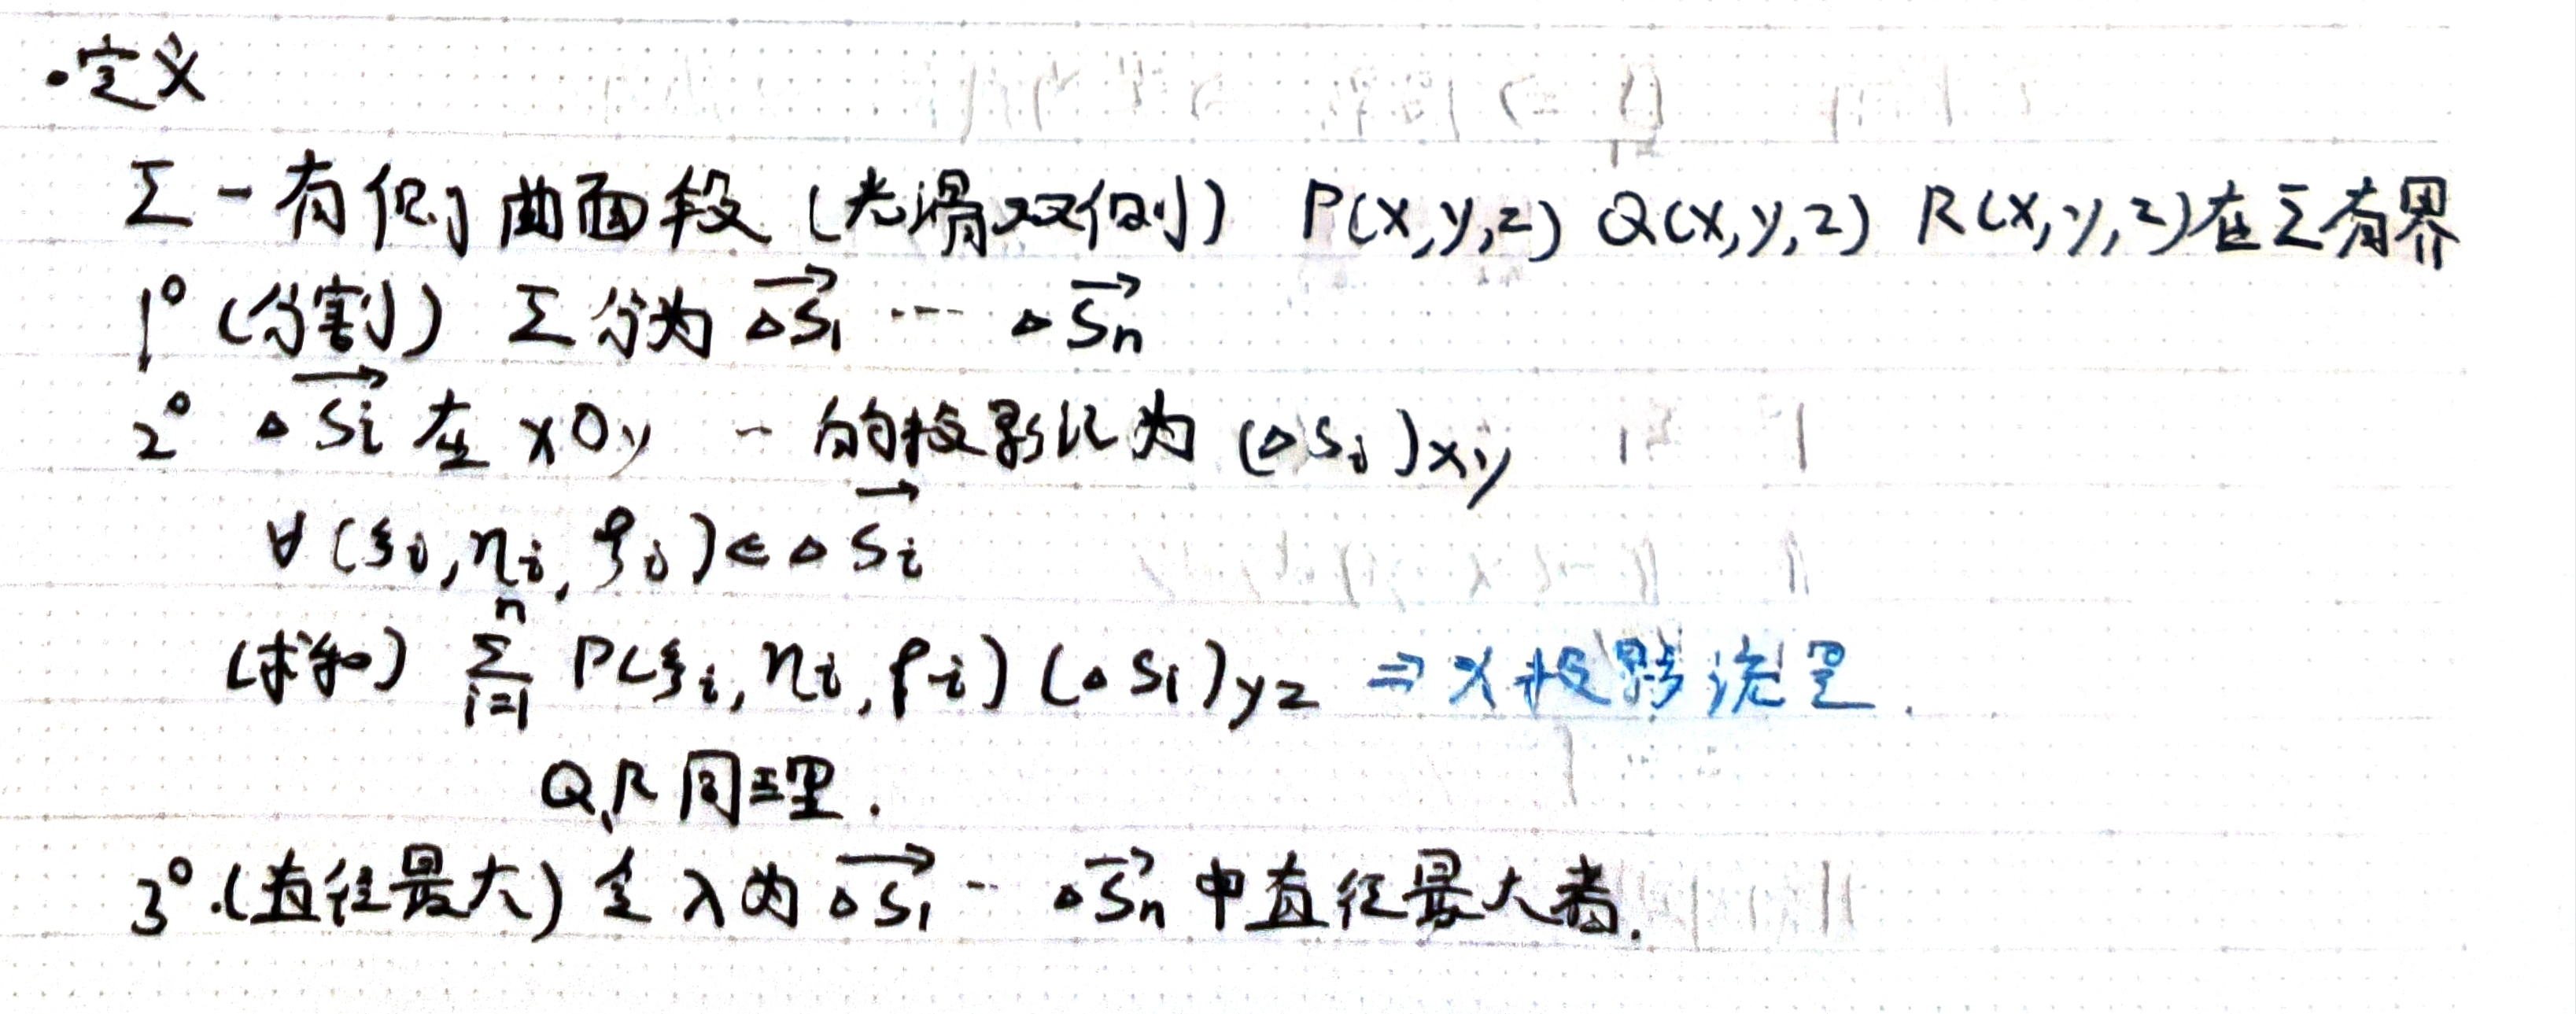 ·定义
Σ-有侧曲面段(光滑双侧) P(x,y,z) Q(x,y,z) R(x,y,z)在Σ有界
1° (分割) Σ分为 △S₁→ ⋯ △Sₙ→
2° △Sᵢ→ 在 xOy - 的投影记为 (△Sᵢ)xy
∀(ξᵢ,ηᵢ,ζᵢ)∈△Sᵢ→
(求和) ∑ᵢ₌₁ⁿ P(ξᵢ,ηᵢ,ζᵢ)(△Sᵢ)yz ⇒ x投影流量.
Q,R同理.
3°.(直径最大) 令λ为 △S₁→ ⋯ △Sₙ→ 中直径最大者.